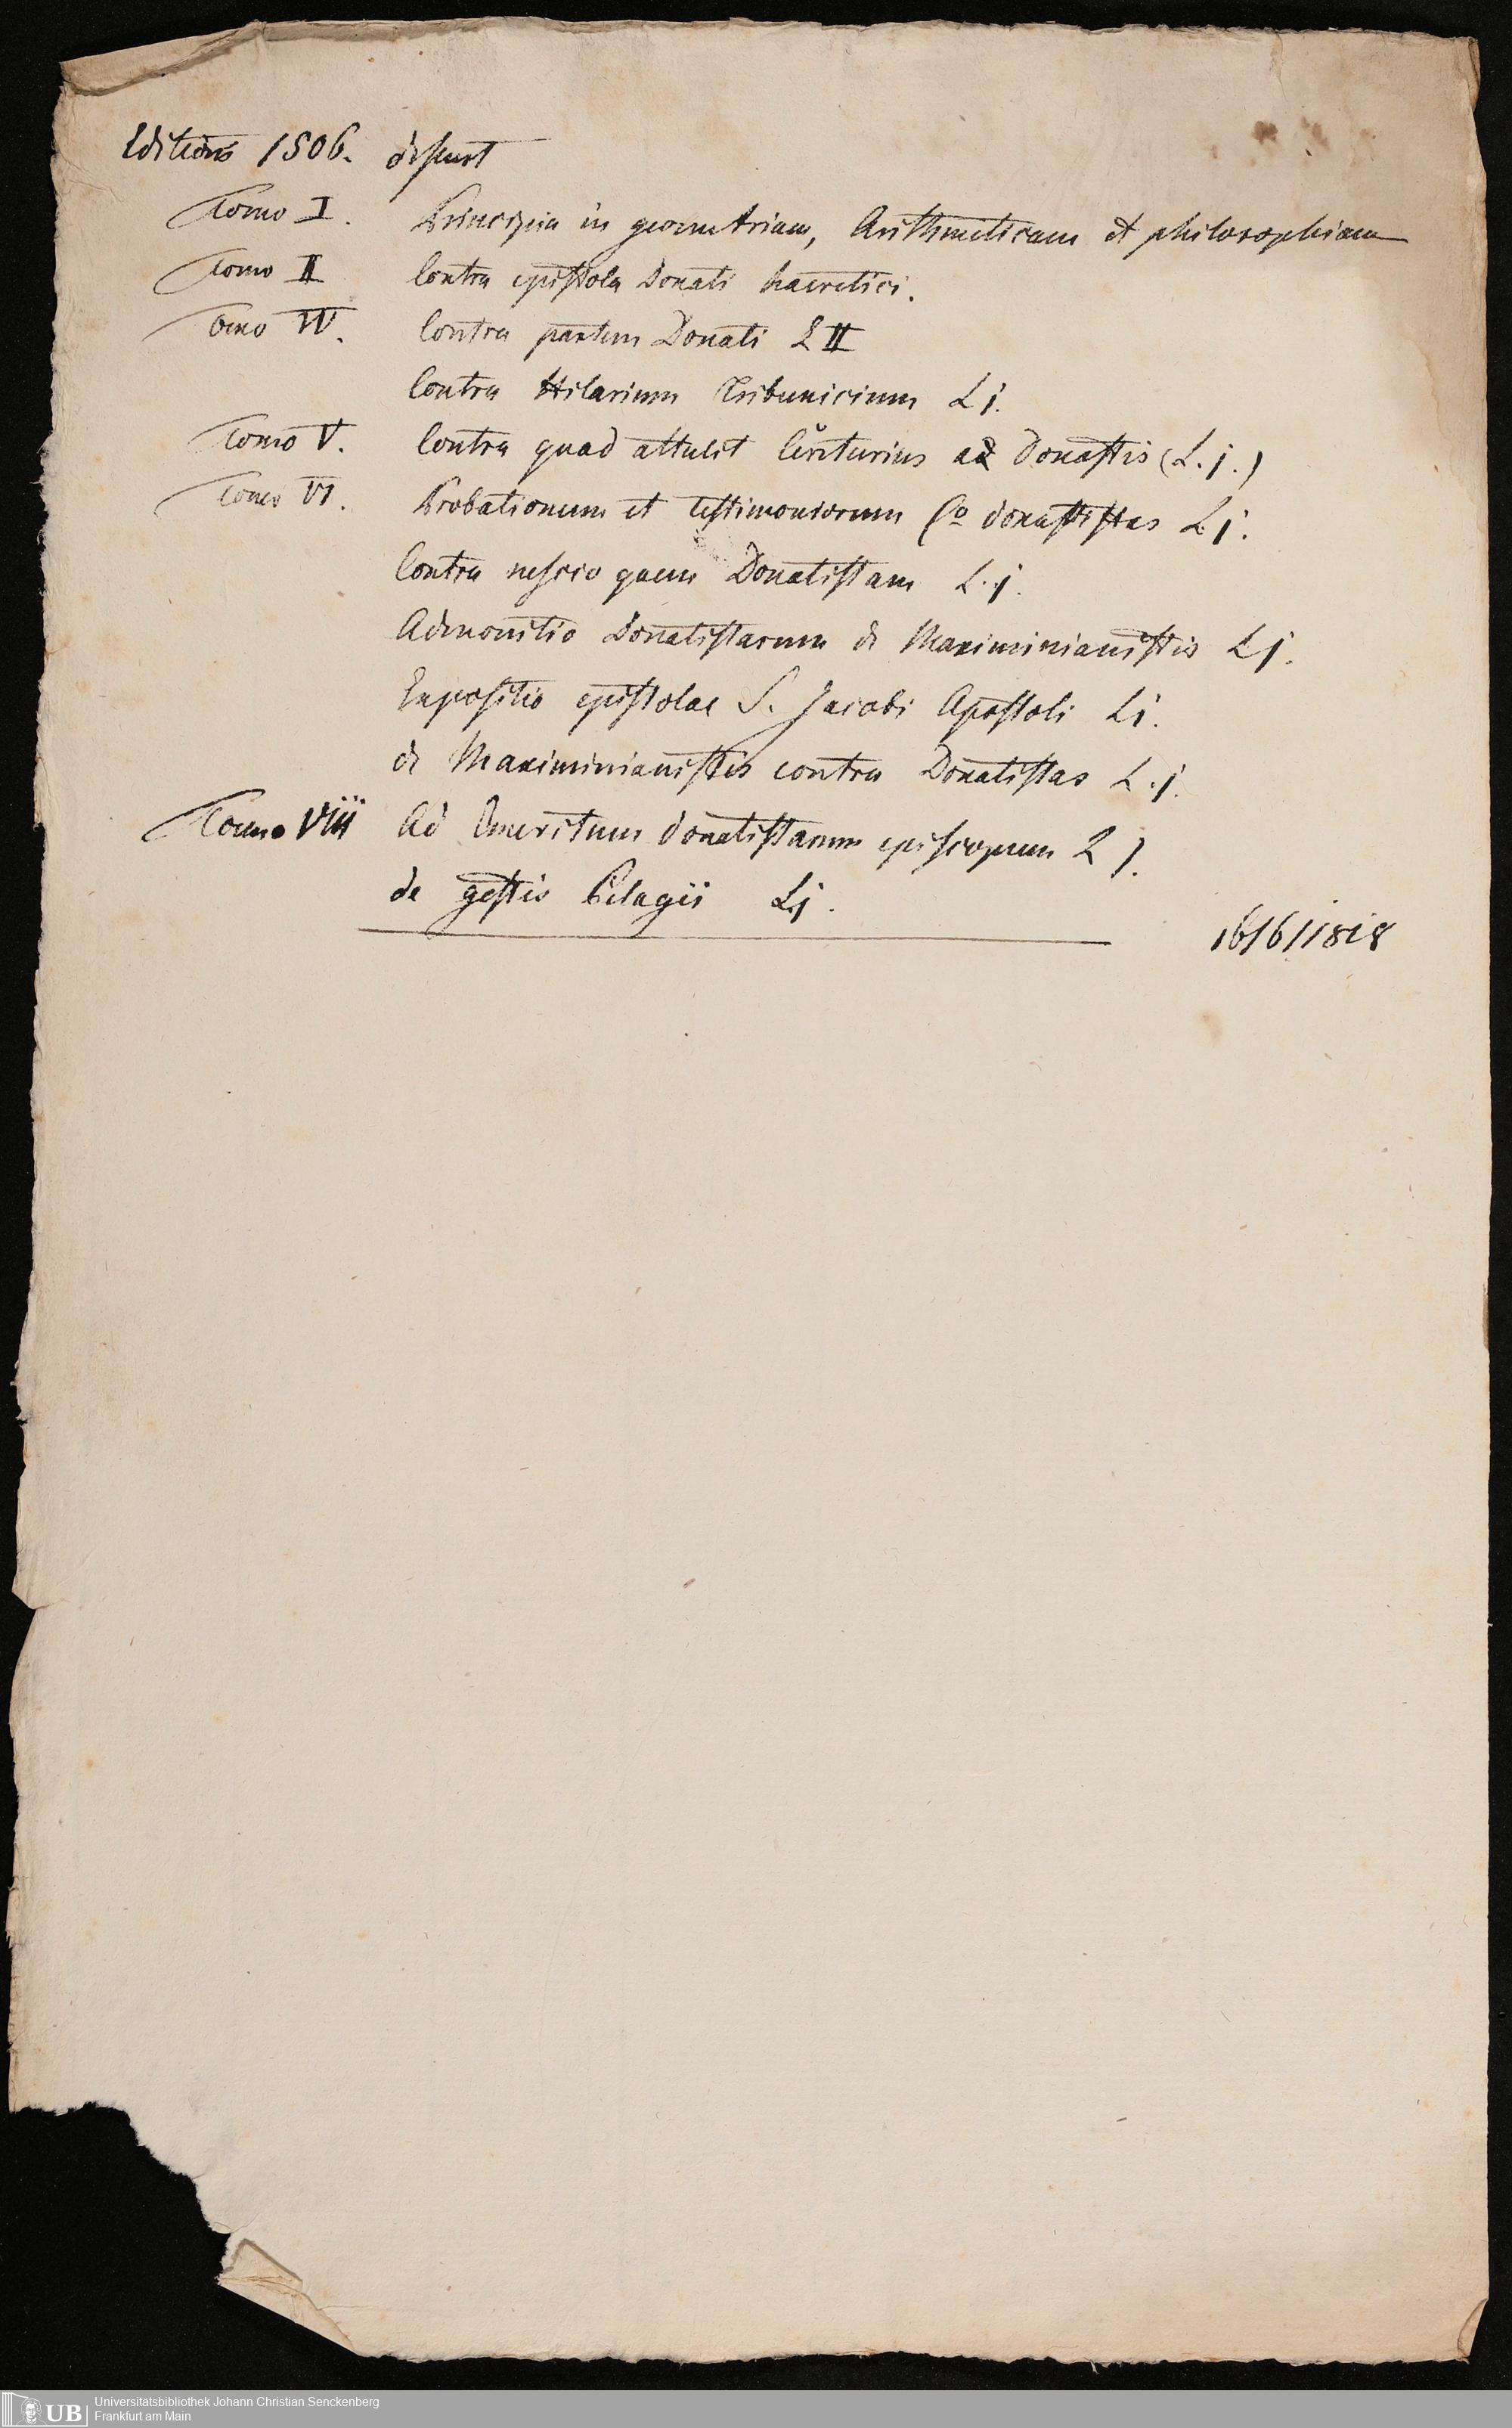 Editionis 1506. desunt
Tomo I. Principia in geometriam, Arithmeticam et philosophiam
Tomo II Contra epistola Donati haeretici.
Tomo IV. Contra partem Donati L II
Contra Hilarium Tribunicium L j.
Tomo V. Contra quod attulit Centurius a Donatis (L. j.)
Tomo VI. Probationum et testimoniorum Co donatistas L j.
Contra nescio quem Donatistam L. j.
Admonitio Donatistarum de Maximinianistis L j.
Expositio epistolae S. Jacobi Apostoli L j.
de Maximinianistis contra Donatistas L. j.
Tomo VIII Ad Emeritum donatistarum episcopum L j.
de gestis Pelagii L j.
16/6/1818
UB Universitätsbibliothek Johann Christian Senckenberg
Frankfurt am Main